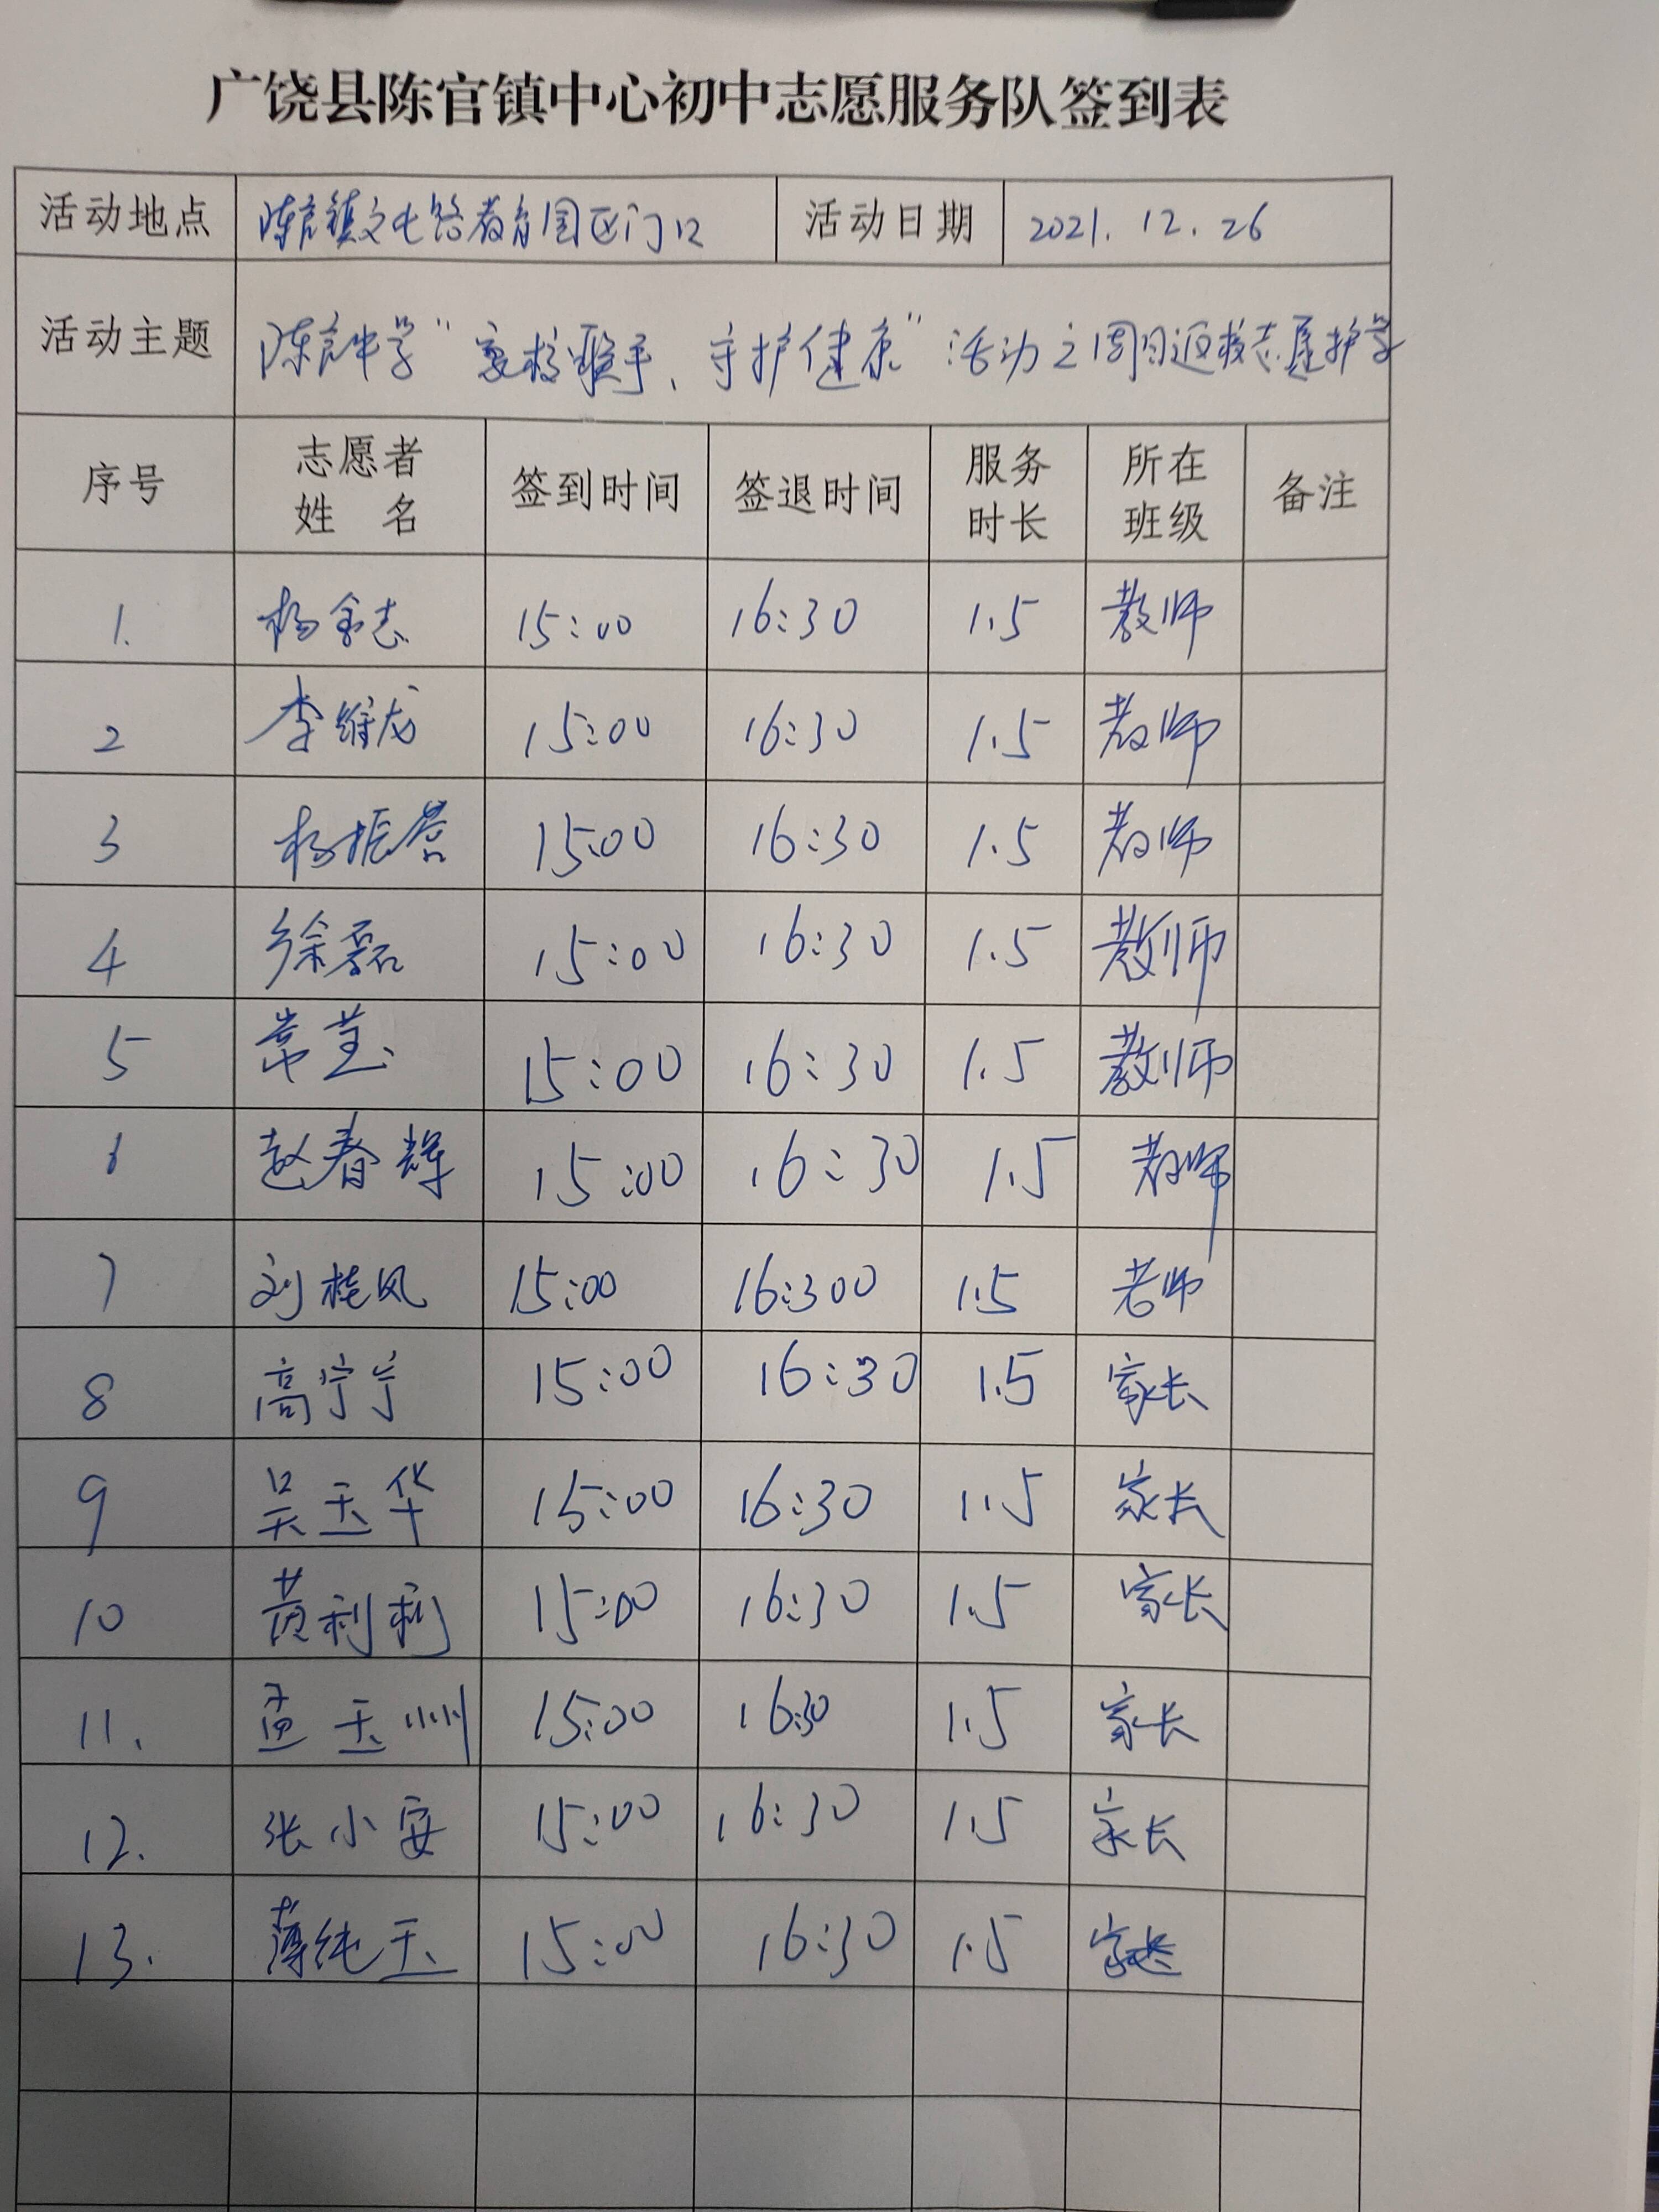 广饶县陈官镇中心初中志愿服务队签到表
活动地点 陈官镇文化路教育园区门口 活动日期 2021.12.26
活动主题 陈官中学“家校联手、守护健康”活动之周日返校志愿护学
序号 志愿者姓 名 签到时间 签退时间 服务时长 所在班级 备注
1. 杨金志 15:00 16:30 1.5 教师
2 李维龙 15:00 16:30 1.5 教师
3 杨振营 15:00 16:30 1.5 教师
4 徐磊 15:00 16:30 1.5 教师
5 常莹 15:00 16:30 1.5 教师
6 赵春辉 15:00 16:30 1.5 教师
7 刘桂凤 15:00 16:300 1.5 老师
8 高宁宁 15:00 16:30 1.5 家长
9 吴玉华 15:00 16:30 1.5 家长
10 黄利利 15:00 16:30 1.5 家长
11. 孟玉州 15:00 16:30 1.5 家长
12. 张小安 15:00 16:30 1.5 家长
13. 薄纯玉 15:00 16:30 1.5 家长